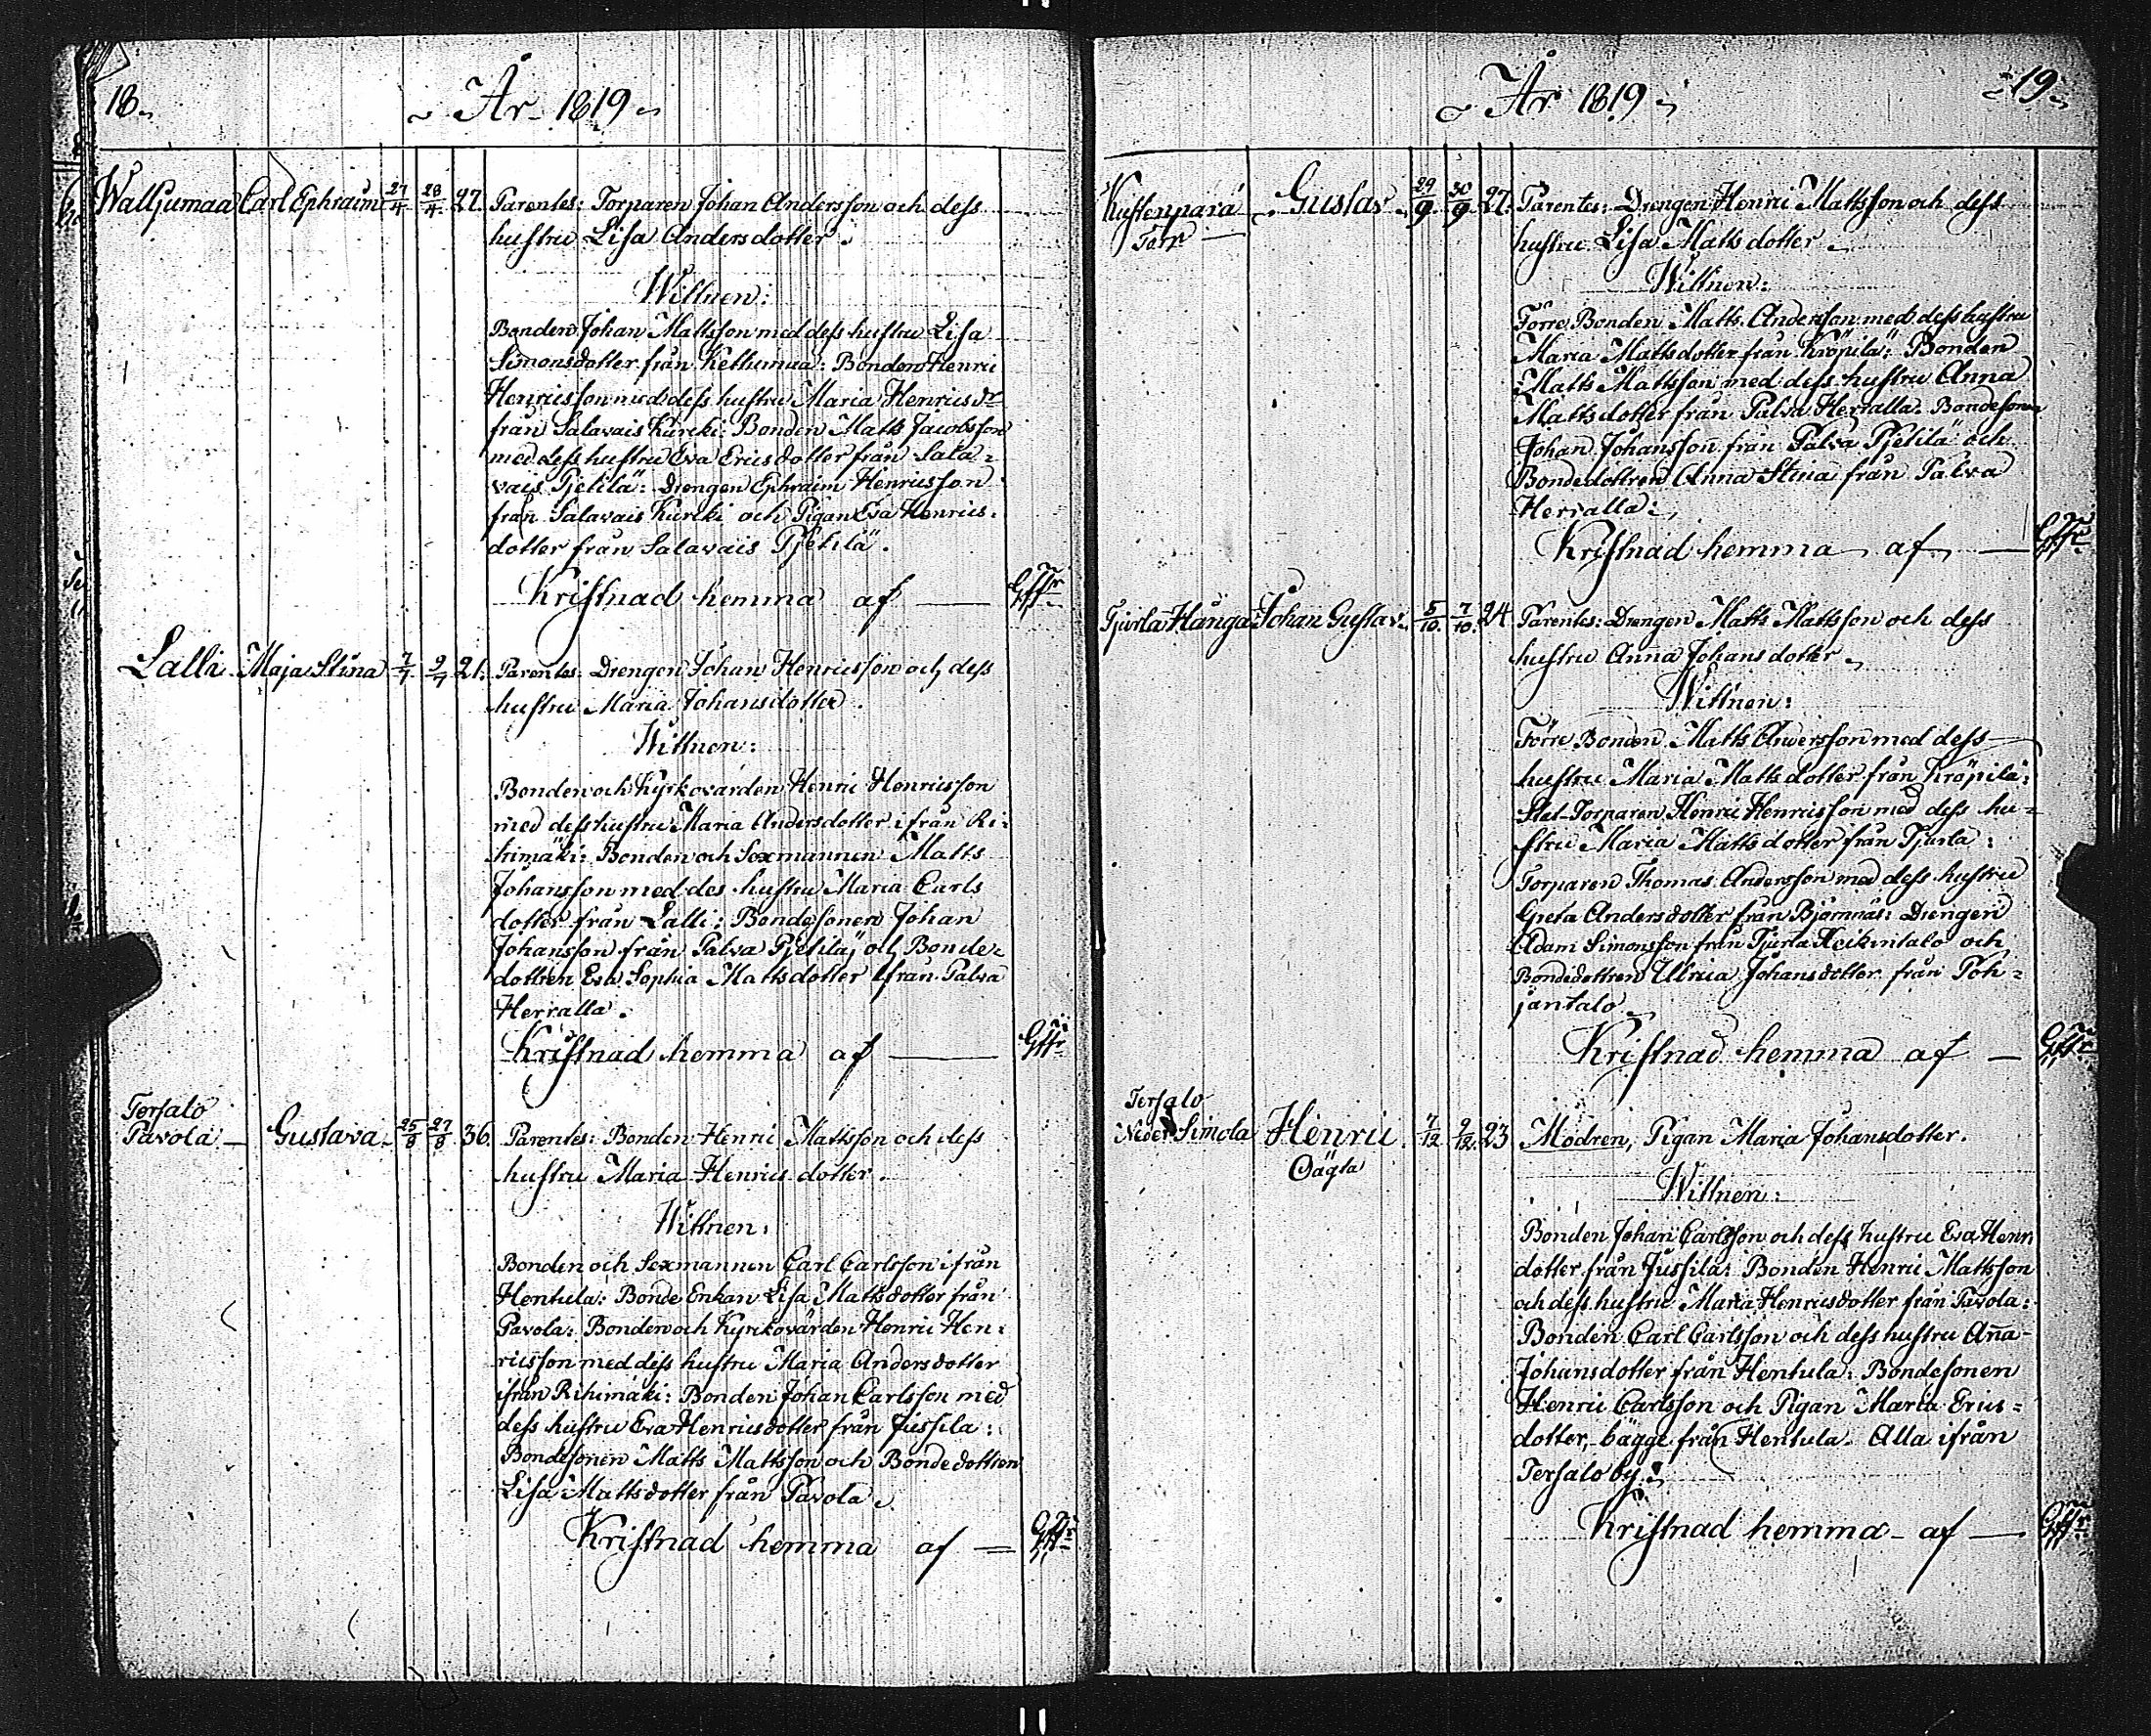 18.
År 1819
Walljumaa Carl Ephraim 27/4 28/4 27. Parentes: Torparen Johan Andersson och dess
hustru Lisa Andersdotter.
Wittnen:
Bonden Johan Mattsson med dess hustru Lisa
Simonsdotter från Kettumaa: Bonden Henric
Henricsson med dess hustru Maria Henricsdr
från Salavais Kurcki: Bonden Matts Jacobsson
med dess hustru Eva Ericsdotter från Sala=
vais Pjetilä: Drengen Ephraim Henricsson
från Salavais Kurcki och Pigan Eva Henrics=
dotter från Salavais Pjetilä.
Kristnad hemma af —
Lalli Maja Stina 7/7 9/7 21. Parentes: Drengen Johan Henricsson och dess
hustru Maria Johansdotter.
Wittnen:
Bonden och Kyrkovärden Henric Henricsson
med dess hustru Maria Andersdotter ifrån Ri=
himäki: Bonden och Sexmannen Matts
Johansson med des hustru Maria Carls
dotter från Lalli: Bondesonen Johan
Johansson från Palva Pjetilä, och Bonde=
dottren Eva Sophia Mattsdotter från Palva
Herralla.
Kristnad hemma af —
Tersalo
Pavola — Gustava 25/8 27/8 36. Parentes: Bonden Henric Mattsson och dess
hustru Maria Henricsdotter.
Wittnen:
Bonden och Sexmannen Carl Carlsson ifrån
Hentula: Bonde Enkan Lisa Mattsdotter från
Pavola: Bonden och Kyrkovärden Henric Hen=
ricsson med dess hustru Maria Andersdotter
ifrån Rihimäki: Bonden Johan Carlsson med
dess hustru Eva Henricsdotter från Jussila:
Bondesonen Matts Mattsson och Bondedottren
Lisa Mattsdotter från Pavola.
Kristnad hemma af —
19
År 1819
Kustenpará Gustav 29/9 30/9 27. Parentes: Drengen Henric Mattsson och dess
Torp — hustru Lisa Mattsdotter.
Wittnen:
Förre Bonden Matts Andersson med dess hustru
Maria Mattsdotter från Kröpilä: Bonden
Matts Mattsson med dess hustru Anna
Mattsdotter från Palva Herralla: Bondesonen
Johan Johansson från Palva Pjetilä och
Bondedottren Anna Stina från Palva
Herralla:
Kristnad hemma af —
Tjurla Hånga Johan Gustav 5/10 7/10 24 Parentes: Drengen Matts Mattsson och dess
hustru Anna Johansdotter.
Wittnen:
Förre Bonden Matts Andersson med dess
hustru Maria Mattsdotter från Kröpilä:
Stat-Torparen Henric Henricsson med dess hu=
stru Maria Mattsdotter från Tjurla:
Torparen Thomas Andersson med dess hustru
Greta Andersdotter från Björnnäs: Drengen
Adam Simonsson från Tjurla Heikintalo och
Bondedottren Ulrica Johansdotter från Poh=
jantalo.
Kristnad hemma af —
Tersalo
Neder Simola Henric 7/12 9/12 23 Modren, Pigan Maria Johansdotter.
Oägta
Wittnen:
Bonden Johan Carlsson och dess hustru Eva Henri
dotter från Jussila: Bonden Henric Mattsson
och dess hustru Maria Henricsdotter från Pavola:
Bonden Carl Carlsson och dess hustru Anna
Johansdotter från Hentula: Bondesonen
Henric Carlsson och Pigan Maria Erics=
dotter, bägge från Hentula. Alla ifrån
Tersalo by.
Kristnad hemma af —